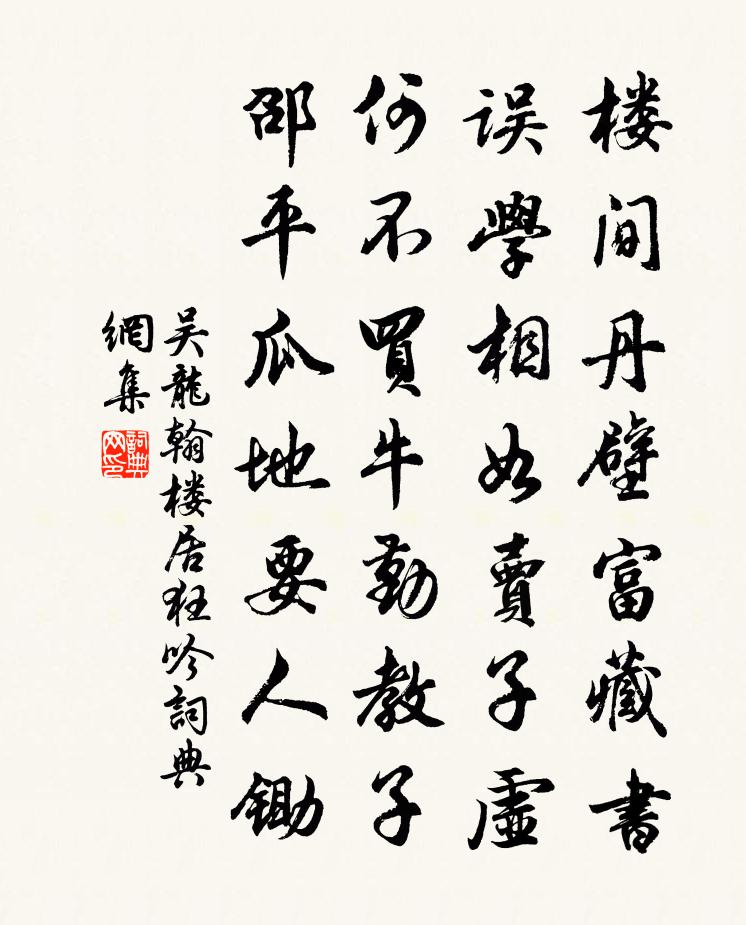 楼间丹壁富藏書
误學相如賣子虛
何不買牛勤教子
邵平瓜地要人鋤
吴龍翰楼居狂吟詞典
網集
詞典
网印